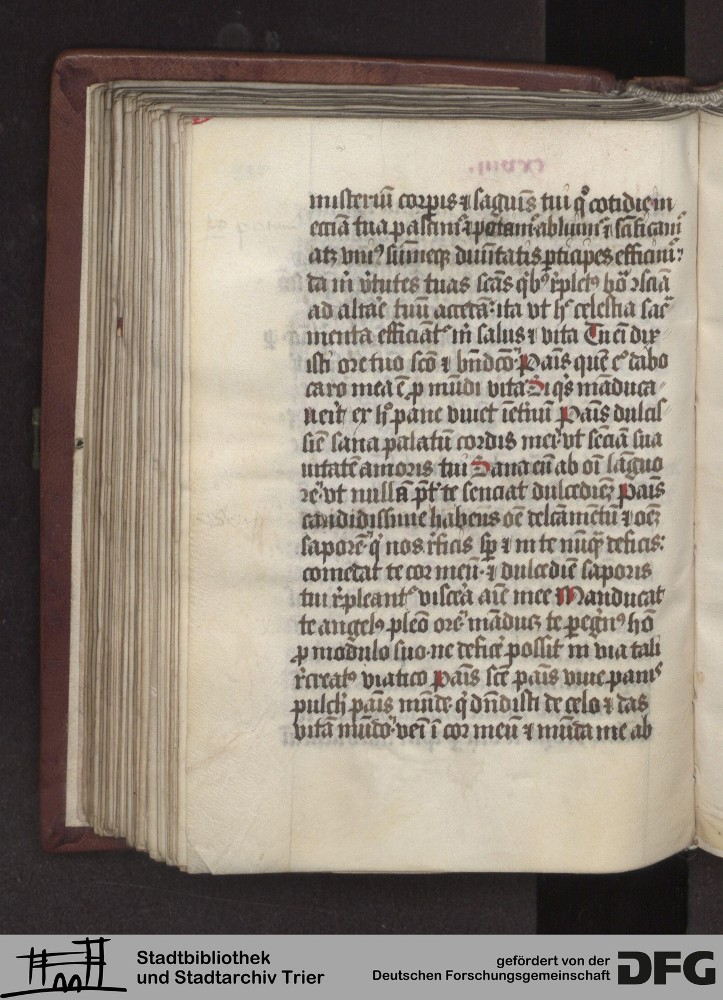 misteriū corp̄is ⁊ saguīs tui q° cotidie in
eccīa tua pascim᷒ ⁊ potam᷒ abluim᷒ ⁊ sc̄ificam᷒
atꝫ vni᷒ sūmeqꝫ diuītatis ꝑticipes efficim᷒:
da m̄ v̓tutes tuas sc̄as qͥb᷒ r̓plet᷒ bōa ↄsciā
ad altar̓ tuū accedā: ita vt h̄ celestia sac̓
menta efficiāt᷒ m̄ salus ⁊ vita Tu em̄ dix
isti ore tuo sc̄o ⁊ bn̄dc̄o Pāis quē e° dabo
caro mea ē ꝓ mūdi vita Si qͥs māduca
uerit ex h° pane viuet ī et̓nū Pāis dulcis
sīe sana palatū cordis mei vt senciā sua
uitatē amoris tui Sana eū ab oī lāguo
re vt nullā p̄t̓ te senciat dulcedinē Pāis
candidissime habens oē delcāmētū ⁊ oēꝫ
saporē q̇ nos r̓ficis sꝑ ⁊ in te nūq̄ deficis:
comedat te cor meū ⁊ dulcedīe saporis
tui r̓pleant᷒ viscera aīe mee Manducat
te angel᷒ pleō ore māducꝫ te ꝑegrin᷒ hō
ꝓ modulo suo ne defice᷒ possit in via tali
r̓creat᷒ viatico Pāis sc̄e pāis viue panis
pulch̓ pāis mūde q̇ dn̄disti de celo ⁊ das
vitā mūdo veī ī cor meū ⁊ mūda me ab
Stadtbibliothek
und Stadtarchiv Trier
gefördert von der
Deutschen Forschungsgemeinschaft
DFG